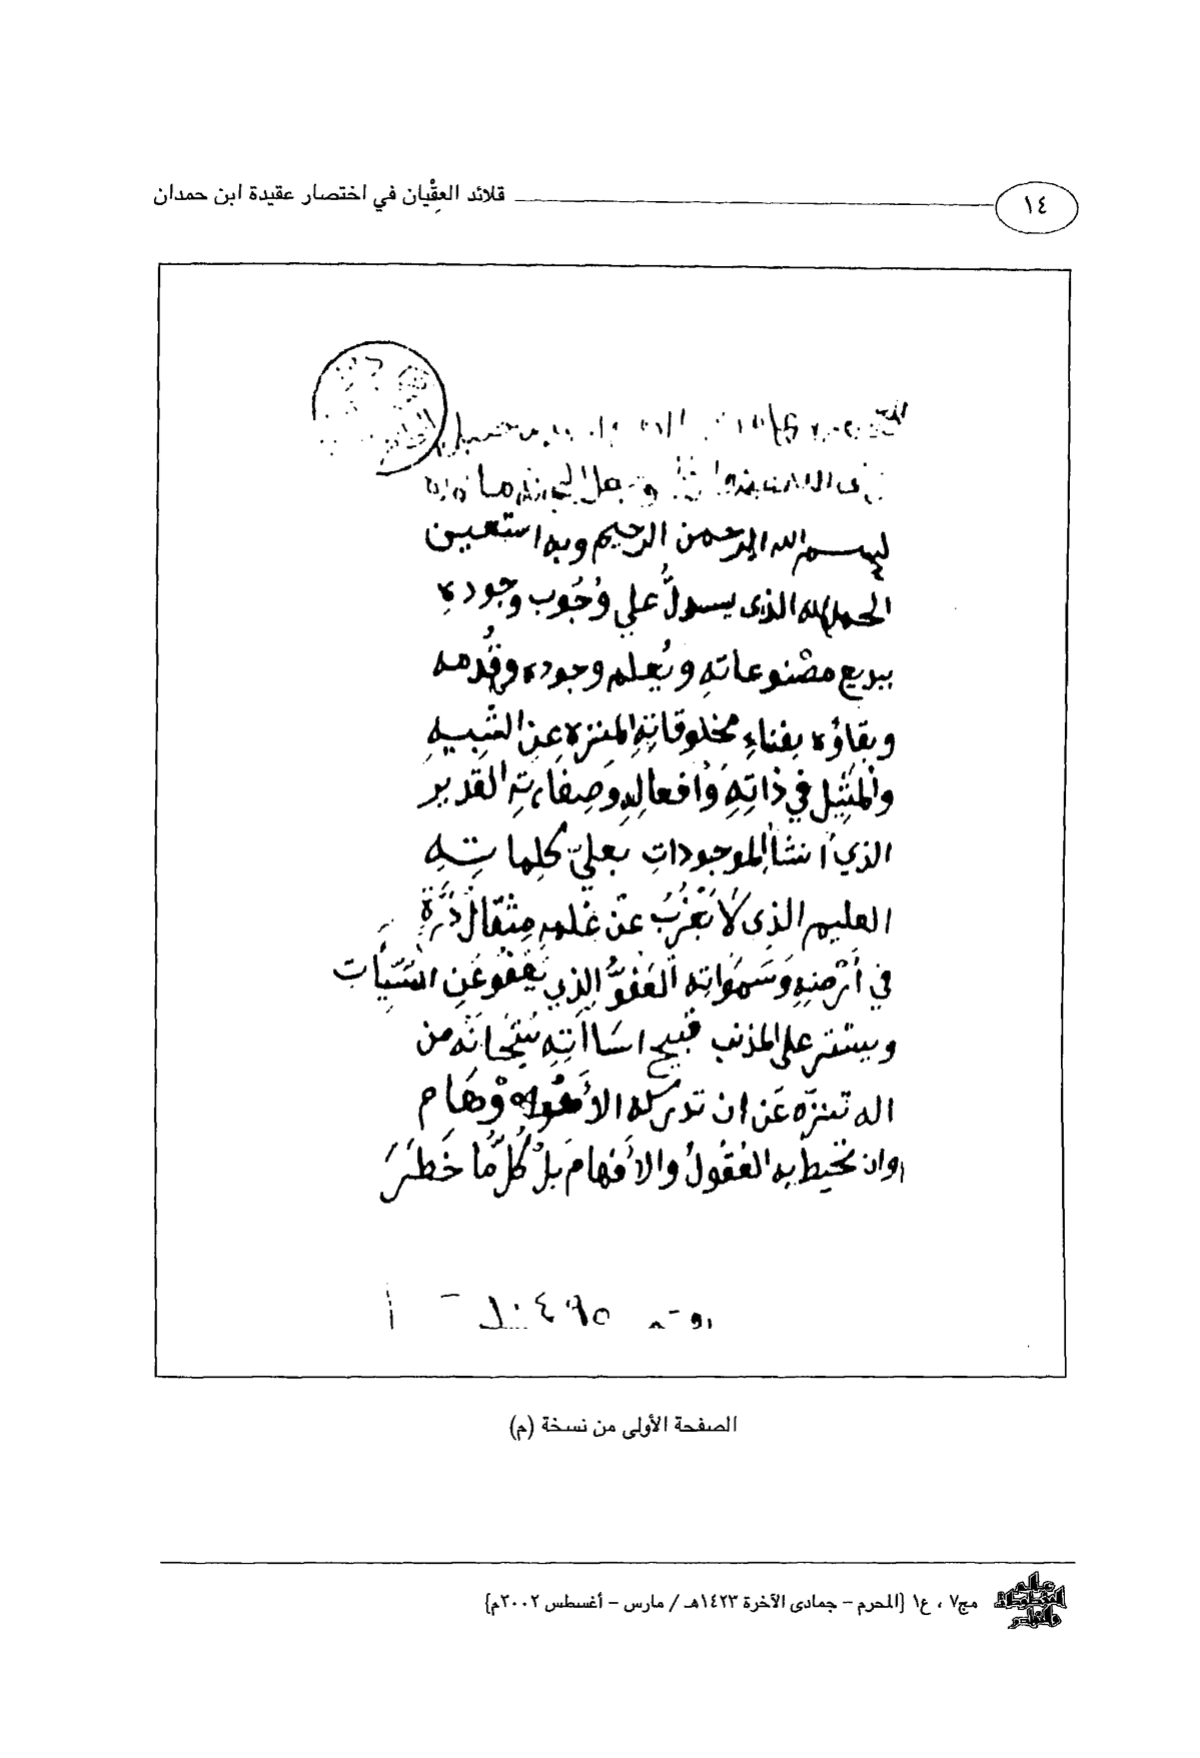 ١٤
قلائد العِقْيان في اختصار عقيدة ابن حمدان
بسم الله الرحمن الرحيم وبه استعين
الحمد لله الذي يسدلُّ علي وُجُوب وجوده
ببديع مصنوعاته ويُعلم وجوده وقُدمه
وبقاؤه بفناءِ مخلوقاتِهِ المنزه عِن الشبيهِ
والمثِيل في ذاتِهِ وَأفعالِهِ وَصِفاتِهِ القدير
الذي أنشأ الموجوداتِ بعليّ كلِماتِهِ
العليم الذي لَا يَعْزُبُ عَنْ عِلمهِ مِثْقَالُ ذَرَّةٍ
في أرْضِهِ وَسَموَاتِهِ العَفوُّ الذِي يَعْفُو عَنِ السَّيِّأتِ
ويستر على المذنب قبيح اسَاأتِهِ سُبْحَانَه من
اله تنزّه عَن ان تدركه الأوْهَام
وان تحيط به العُقُولُ والأفهَام بَلْ كُلَّ مَا خَطَرَ
٤٩٥
الصفحة الأولى من نسخة (م)
عالم المخطوطات والنوادر
مج٧ ، ع١ {المحرم – جمادى الآخرة ١٤٢٣هـ / مارس – أغسطس ٢٠٠٢م}